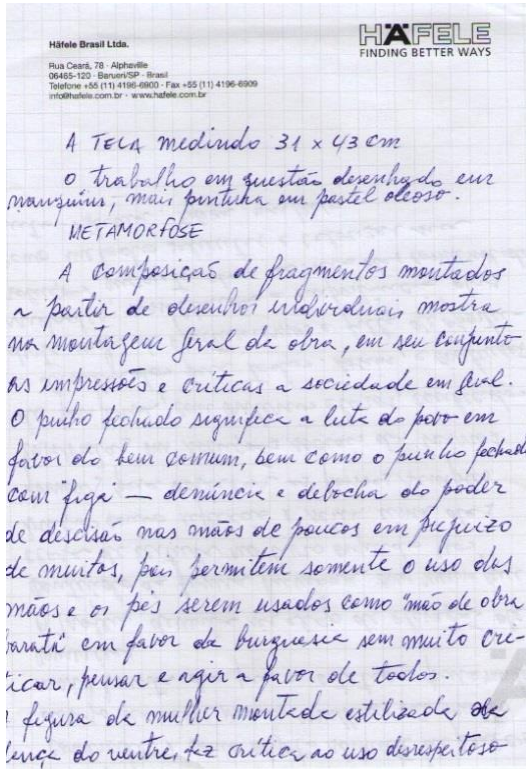 Häfele Brasil Ltda.
HÄFELE
FINDING BETTER WAYS
Rua Ceará, 78 - Alphaville
06465-120 - Barueri/SP - Brasil
Telefone +55 (11) 4196-6900 - Fax +55 (11) 4196-6909
info@hafele.com.br - www.hafele.com.br
A TELA medindo 31 x 43 cm
O trabalho em questão desenhado em
nanquim, mais pintura em pastel oleoso.
METAMORFOSE
A composição de fragmentos montados
a partir de desenhos individuais mostra
na montagem geral da obra, em seu conjunto
as impressões e críticas a sociedade em geral.
O punho fechado significa a luta do povo em
favor do bem comum, bem como o punho fechado
com "figa" — denúncia e debocha do poder
de descisão nas mãos de poucos em prejuizo
de muitos, pois permitem somente o uso das
mãos e os pés serem usados como "mão de obra
barata" em favor da burguesia sem muito cri-
ticar, pensar e agir a favor de todos.
figura da mulher montada estilizada da
dença do ventre, faz crítica ao uso desrespeitoso